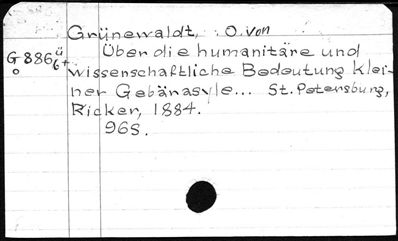 Grünewaldt, O. von
G 886 ü 6+
o
Über die humanitäre und
wissenschaftliche Bedeutung klei-
ner Gebärasyle... St. Petersburg,
Ricker, 1884.
96S.